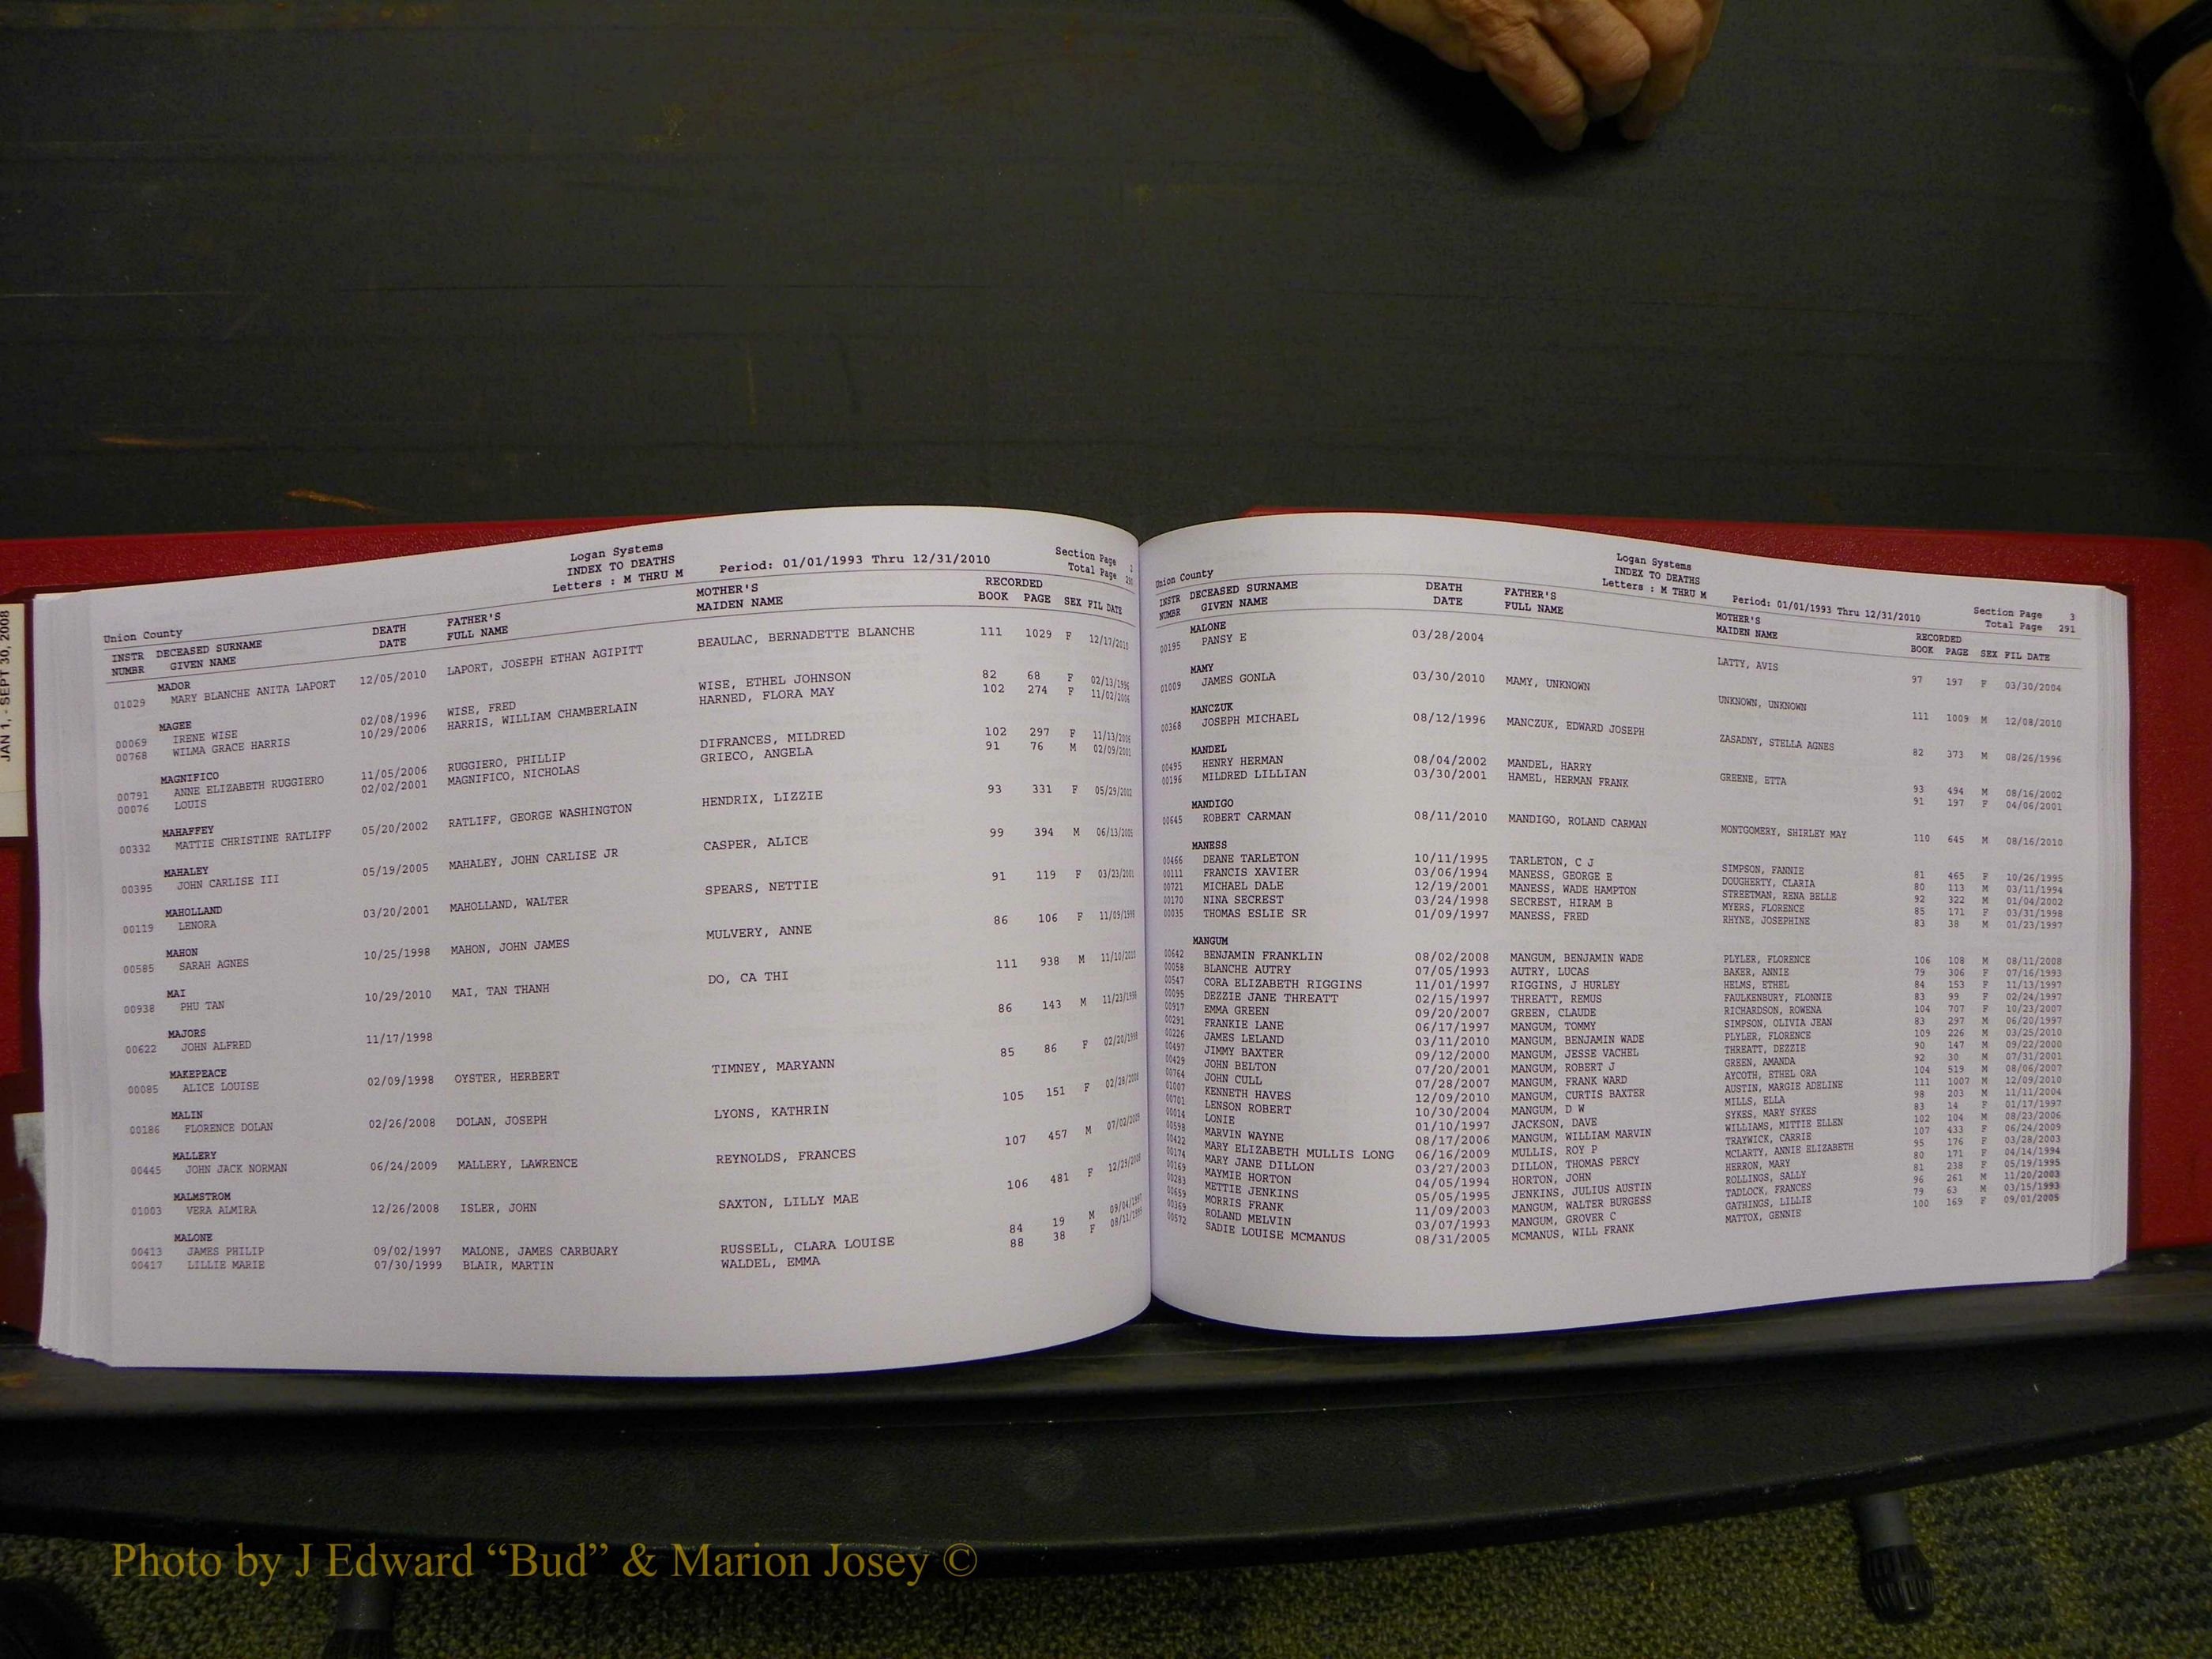 JAN 1, - SEPT 30, 2008
Logan Systems
INDEX TO DEATHS
Letters : M THRU M
Period: 01/01/1993 Thru 12/31/2010
Section Page
Total Page
Union County
INSTR NUMBR DECEASED SURNAME GIVEN NAME DEATH DATE FATHER'S FULL NAME MOTHER'S MAIDEN NAME RECORDED BOOK PAGE SEX FIL DATE
MADOR
01029 MARY BLANCHE ANITA LAPORT 12/05/2010 LAPORT, JOSEPH ETHAN AGIPITT BEAULAC, BERNADETTE BLANCHE 111 1029 F 12/17/2010
MAGEE
00069 IRENE WISE 02/08/1996 WISE, FRED WISE, ETHEL JOHNSON 82 68 F 02/13/1996
00768 WILMA GRACE HARRIS 10/29/2006 HARRIS, WILLIAM CHAMBERLAIN HARNED, FLORA MAY 102 274 F 11/02/2006
MAGNIFICO
00791 ANNE ELIZABETH RUGGIERO 11/05/2006 RUGGIERO, PHILLIP DIFRANCES, MILDRED 102 297 F 11/13/2006
00076 LOUIS 02/02/2001 MAGNIFICO, NICHOLAS GRIECO, ANGELA 91 76 M 02/09/2001
MAHAFFEY
00332 MATTIE CHRISTINE RATLIFF 05/20/2002 RATLIFF, GEORGE WASHINGTON HENDRIX, LIZZIE 93 331 F 05/29/2002
MAHALEY
00395 JOHN CARLISE III 05/19/2005 MAHALEY, JOHN CARLISE JR CASPER, ALICE 99 394 M 06/13/2005
MAHOLLAND
00119 LENORA 03/20/2001 MAHOLLAND, WALTER SPEARS, NETTIE 91 119 F 03/23/2001
MAHON
00585 SARAH AGNES 10/25/1998 MAHON, JOHN JAMES MULVERY, ANNE 86 106 F 11/09/1998
MAI
00938 PHU TAN 10/29/2010 MAI, TAN THANH DO, CA THI 111 938 M 11/10/2010
MAJORS
00622 JOHN ALFRED 11/17/1998 86 143 M 11/23/1998
MAKEPEACE
00085 ALICE LOUISE 02/09/1998 OYSTER, HERBERT TIMNEY, MARYANN 85 86 F 02/20/1998
MALIN
00186 FLORENCE DOLAN 02/26/2008 DOLAN, JOSEPH LYONS, KATHRIN 105 151 F 02/28/2008
MALLERY
00445 JOHN JACK NORMAN 06/24/2009 MALLERY, LAWRENCE REYNOLDS, FRANCES 107 457 M 07/02/2009
MALMSTROM
01003 VERA ALMIRA 12/26/2008 ISLER, JOHN SAXTON, LILLY MAE 106 481 F 12/29/2008
MALONE
00413 JAMES PHILIP 09/02/1997 MALONE, JAMES CARBUARY RUSSELL, CLARA LOUISE 84 19 M 09/04/1997
00417 LILLIE MARIE 07/30/1999 BLAIR, MARTIN WALDEL, EMMA 88 38 F 08/11/1999
Logan Systems
INDEX TO DEATHS
Letters : M THRU M
Period: 01/01/1993 Thru 12/31/2010
Section Page 3
Total Page 291
Union County
INSTR NUMBR DECEASED SURNAME GIVEN NAME DEATH DATE FATHER'S FULL NAME MOTHER'S MAIDEN NAME RECORDED BOOK PAGE SEX FIL DATE
MALONE
00195 PANSY E 03/28/2004 LATTY, AVIS 97 197 F 03/30/2004
MAMY
01009 JAMES GONLA 03/30/2010 MAMY, UNKNOWN UNKNOWN, UNKNOWN 111 1009 M 12/08/2010
MANCZUK
00368 JOSEPH MICHAEL 08/12/1996 MANCZUK, EDWARD JOSEPH ZASADNY, STELLA AGNES 82 373 M 08/26/1996
MANDEL
00495 HENRY HERMAN 08/04/2002 MANDEL, HARRY GREENE, ETTA 93 494 M 08/16/2002
00196 MILDRED LILLIAN 03/30/2001 HAMEL, HERMAN FRANK 91 197 F 04/06/2001
MANDIGO
00645 ROBERT CARMAN 08/11/2010 MANDIGO, ROLAND CARMAN MONTGOMERY, SHIRLEY MAY 110 645 M 08/16/2010
MANESS
00466 DEANE TARLETON 10/11/1995 TARLETON, C J SIMPSON, FANNIE 81 465 F 10/26/1995
00111 FRANCIS XAVIER 03/06/1994 MANESS, GEORGE E DOUGHERTY, CLARIA 80 113 M 03/11/1994
00721 MICHAEL DALE 12/19/2001 MANESS, WADE HAMPTON STREETMAN, RENA BELLE 92 322 M 01/04/2002
00170 NINA SECREST 03/24/1998 SECREST, HIRAM B MYERS, FLORENCE 85 171 F 03/31/1998
00035 THOMAS ESLIE SR 01/09/1997 MANESS, FRED RHYNE, JOSEPHINE 83 38 M 01/23/1997
MANGUM
00642 BENJAMIN FRANKLIN 08/02/2008 MANGUM, BENJAMIN WADE PLYLER, FLORENCE 106 108 M 08/11/2008
00058 BLANCHE AUTRY 07/05/1993 AUTRY, LUCAS BAKER, ANNIE 79 306 F 07/16/1993
00547 CORA ELIZABETH RIGGINS 11/01/1997 RIGGINS, J HURLEY HELMS, ETHEL 84 153 F 11/13/1997
00095 DEZZIE JANE THREATT 02/15/1997 THREATT, REMUS FAULKENBURY, FLONNIE 83 99 F 02/24/1997
00917 EMMA GREEN 09/20/2007 GREEN, CLAUDE RICHARDSON, ROWENA 104 707 F 10/23/2007
00291 FRANKIE LANE 06/17/1997 MANGUM, TOMMY SIMPSON, OLIVIA JEAN 83 297 M 06/20/1997
00226 JAMES LELAND 03/11/2010 MANGUM, BENJAMIN WADE PLYLER, FLORENCE 109 226 M 03/25/2010
00497 JIMMY BAXTER 09/12/2000 MANGUM, JESSE VACHEL THREATT, DEZZIE 90 147 M 09/22/2000
00429 JOHN BELTON 07/20/2001 MANGUM, ROBERT J GREEN, AMANDA 92 30 M 07/31/2001
00764 JOHN CULL 07/28/2007 MANGUM, FRANK WARD AYCOTH, ETHEL ORA 104 519 M 08/06/2007
01007 KENNETH HAVES 12/09/2010 MANGUM, CURTIS BAXTER AUSTIN, MARGIE ADELINE 111 1007 M 12/09/2010
00701 LENSON ROBERT 10/30/2004 MANGUM, D W MILLS, ELLA 98 203 M 11/11/2004
00014 LONIE 01/10/1997 JACKSON, DAVE SYKES, MARY SYKES 83 14 F 01/17/1997
00598 MARVIN WAYNE 08/17/2006 MANGUM, WILLIAM MARVIN WILLIAMS, MITTIE ELLEN 102 104 M 08/23/2006
00422 MARY ELIZABETH MULLIS LONG 06/16/2009 MULLIS, ROY P TRAYWICK, CARRIE 107 433 F 06/24/2009
00174 MARY JANE DILLON 03/27/2003 DILLON, THOMAS PERCY MCLARTY, ANNIE ELIZABETH 95 176 F 03/28/2003
00169 MAYMIE HORTON 04/05/1994 HORTON, JOHN HERRON, MARY 80 171 F 04/14/1994
00283 METTIE JENKINS 05/05/1995 JENKINS, JULIUS AUSTIN ROLLINGS, SALLY 81 238 F 05/19/1995
00659 MORRIS FRANK 11/09/2003 MANGUM, WALTER BURGESS TADLOCK, FRANCES 96 261 M 11/20/2003
00369 ROLAND MELVIN 03/07/1993 MANGUM, GROVER C GATHINGS, LILLIE 79 63 M 03/15/1993
00572 SADIE LOUISE MCMANUS 08/31/2005 MCMANUS, WILL FRANK MATTOX, GENNIE 100 169 F 09/01/2005
Photo by J Edward “Bud” & Marion Josey ©